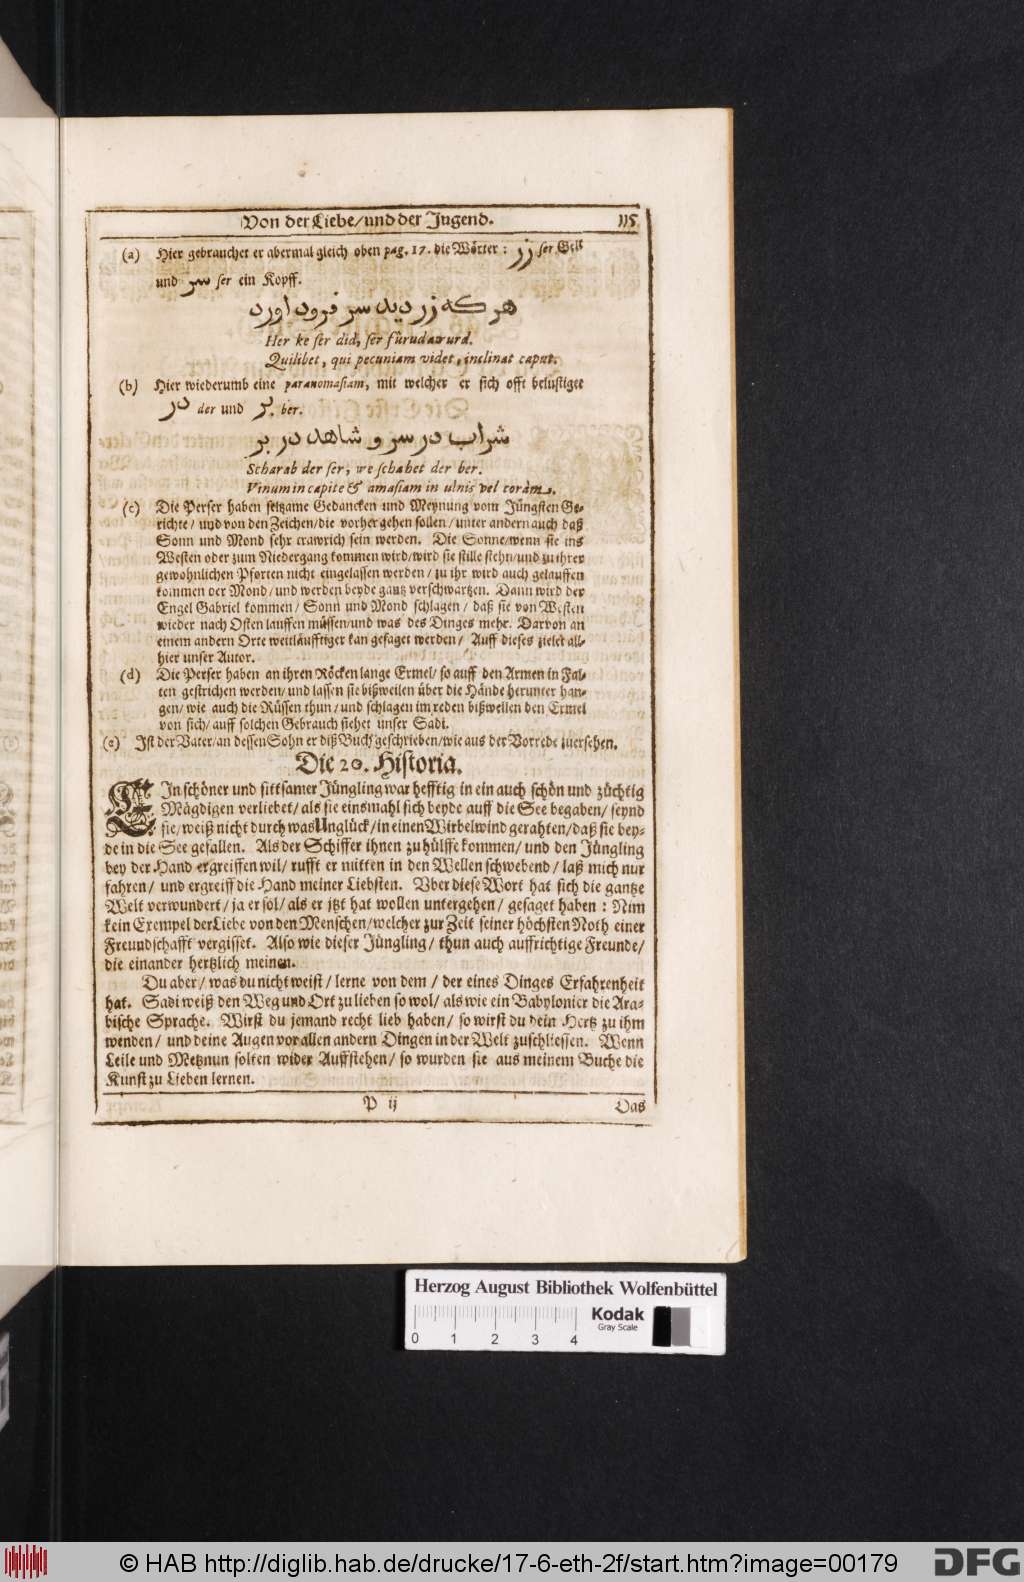 Von der Liebe/und der Jugend. 115
(a) Hier gebrauchet er abermal gleich oben pag. 17. die Wörter : زر ser Gelt
und سر ser ein Kopff.
هر كه زر ديد سر فرود اورد
Her ke ser did, ser furudawurd.
Quilibet, qui pecuniam videt, inclinat caput.
(b) Hier wiederumb eine paranomasiam, mit welcher er sich offt belustiget
در der und بر ber.
شراب در سر و شاهد در بر
Scharab der ser, we schahet der ber.
Vinum in capite & amasiam in ulnis vel coràm.
(c) Die Perser haben seltzame Gedancken und Meynung vom Jüngsten Ge-
richte/ und von den Zeichen/die vorher gehen sollen/ unter andern auch daß
Sonn und Mond sehr trawrich sein werden. Die Sonne/wenn sie ins
Westen oder zum Niedergang kommen wird/wird sie stille stehn/und zu ihrer
gewohnlichen Pforten nicht eingelassen werden/ zu ihr wird auch gelauffen
kommen der Mond/ und werden beyde gantz verschwartzen. Dann wird der
Engel Gabriel kommen/ Sonn und Mond schlagen/ daß sie von Westen
wieder nach Osten lauffen müssen/und was des Dinges mehr. Darvon an
einem andern Orte weitläufftiger kan gesaget werden/ Auff dieses zielet all-
hier unser Autor.
(d) Die Perser haben an ihren Röcken lange Ermel/ so auff den Armen in Fal-
ten gestrichen werden/ und lassen sie bißweilen über die Hände herunter han-
gen/ wie auch die Rüssen thun/ und schlagen im reden bißweilen den Ermel
von sich/ auff solchen Gebrauch siehet unser Sadi.
(e) Ist der Vater/an dessen Sohn er diß Buch geschrieben/wie aus der Vorrede zuersehen.
Die 20. Historia.
EIn schöner und sittsamer Jüngling war hefftig in ein auch schön und züchtig
Mägdigen verliebet/ als sie einsmahl sich beyde auff die See begaben/ seynd
sie/ weiß nicht durch was Unglück/ in einen Wirbelwind gerahten/ daß sie bey-
de in die See gefallen. Als der Schiffer ihnen zu hülffe kommen/ und den Jüngling
bey der Hand ergreiffen wil/ rufft er mitten in den Wellen schwebend/ laß mich nur
fahren/ und ergreiff die Hand meiner Liebsten. Vber diese Wort hat sich die gantze
Welt verwundert/ ja er sol/ als er jtzt hat wollen untergehen/ gesaget haben : Nim
kein Exempel der Liebe von den Menschen/welcher zur Zeit seiner höchsten Noth einer
Freundschafft vergisset. Also wie dieser Jüngling/ thun auch auffrichtige Freunde/
die einander hertzlich meinen.
Du aber/ was du nicht weist/ lerne von dem/ der eines Dinges Erfahrenheit
hat. Sadi weiß den Weg und Ort zu lieben so wol/ als wie ein Babylonier die Ara-
bische Sprache. Wirst du jemand recht lieb haben/ so wirst du dein Hertz zu ihm
wenden/ und deine Augen vor allen andern Dingen in der Welt zuschliessen. Wenn
Leile und Metznun solten wider Auffstehen/ so wurden sie aus meinem Buche die
Kunst zu Lieben lernen.
P ij Das
Herzog August Bibliothek Wolfenbüttel
Kodak
Gray Scale
0 1 2 3 4
© HAB http://diglib.hab.de/drucke/17-6-eth-2f/start.htm?image=00179
DFG